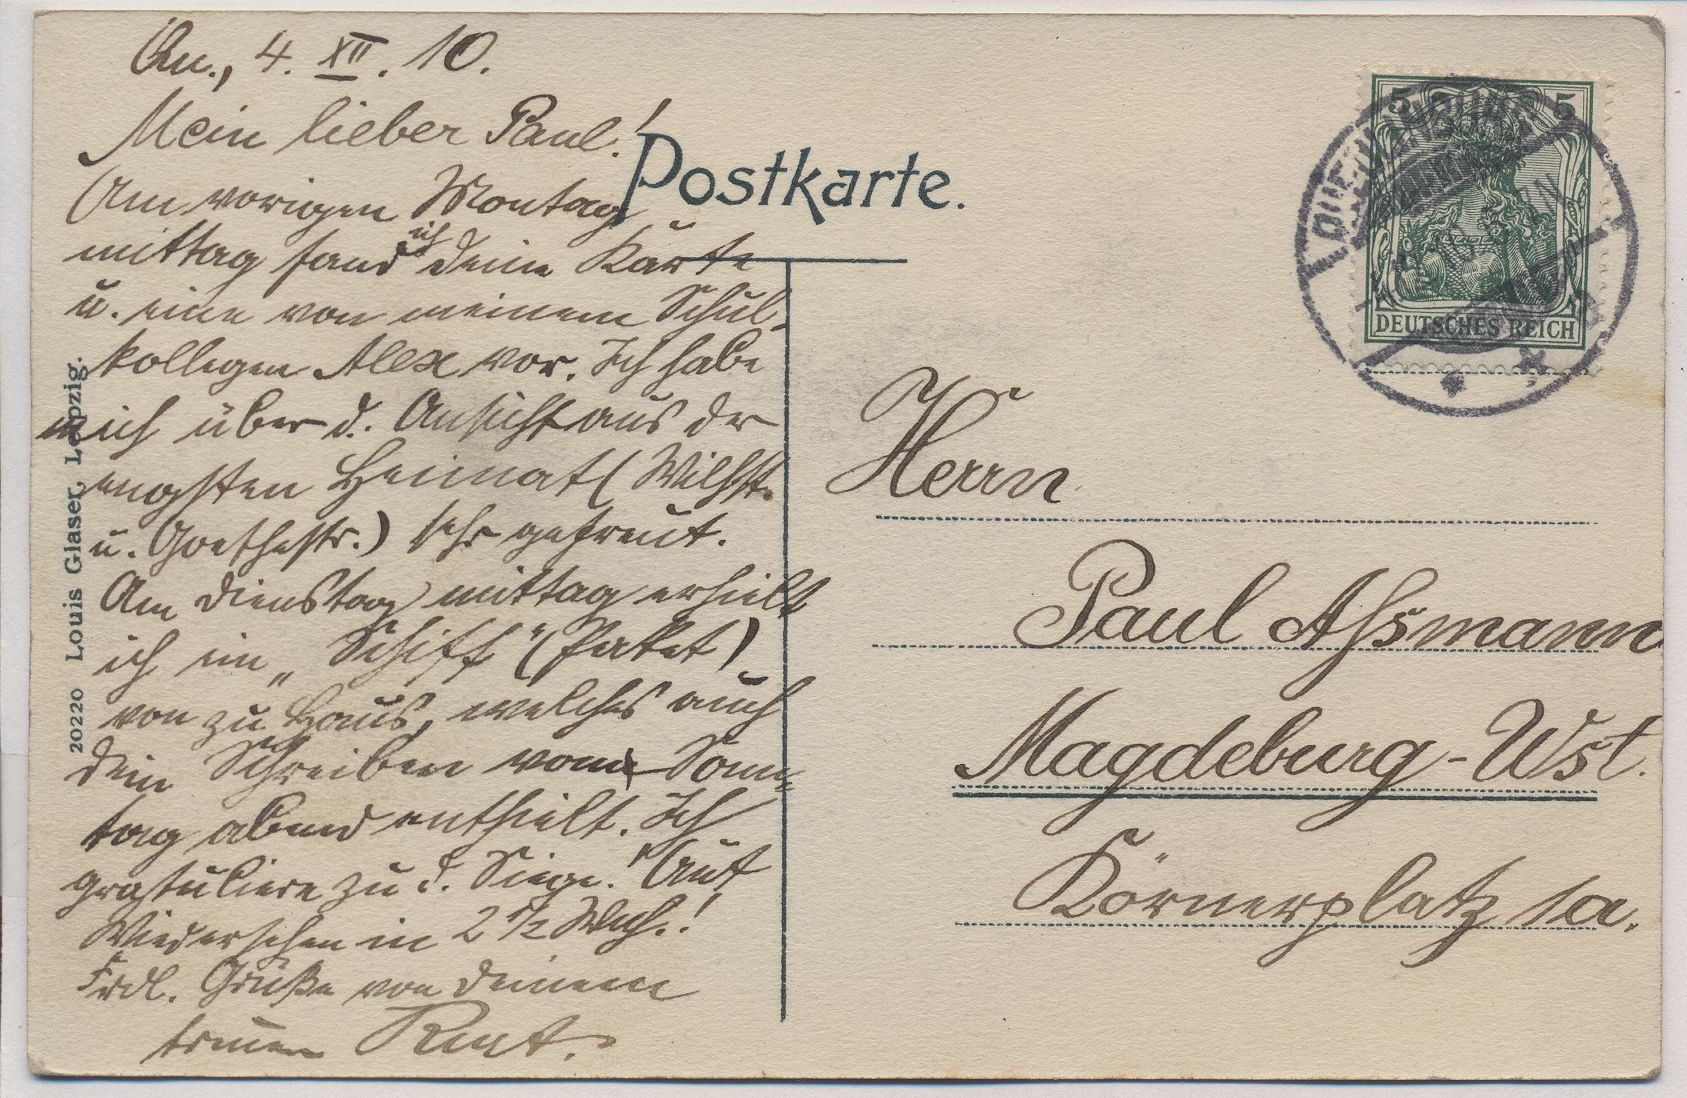 Qu., 4. XII. 10.
Mein lieber Paul!
Am vorigen Montag
mittag fand ich deine Karte
u. eine von meinem Schul-
kollegen Alex vor. Ich habe
mich über d. Ansicht aus der
engsten Heimat (Wilhst.
u. Goethestr.) sehr gefreut.
Am Dienstag mittag erhielt
ich ein „Schiff“ (Paket)
von zu Haus, welches auch
dein Schreiben vom Sonn-
tag abend enthielt. Ich
gratuliere zu d. Siege! Auf
Wiedersehen in 2 1/2 Wch.!
Frdl. Grüße von deinem
treuen Kurt.
Postkarte.
5 5
DEUTSCHES REICH
QUEDLINBURG
Herrn
Paul Assmann
Magdeburg-Wst.
Körnerplatz 1a.
20220 Louis Glaser, Leipzig.